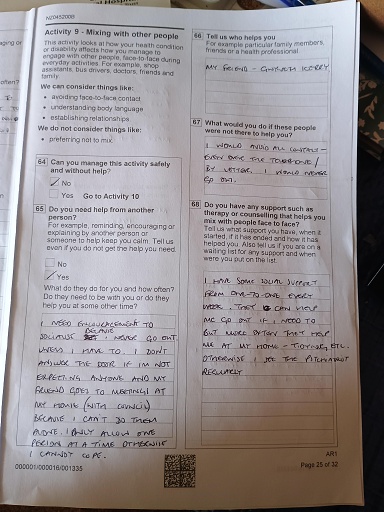 Activity 9 - Mixing with other people
This activity looks at how your health condition
or disability affects how you manage to
engage with other people, face-to-face during
everyday activities. For example, shop
assistants, bus drivers, doctors, friends and
family.
We can consider things like:
• avoiding face-to-face contact
• understanding body language
• establishing relationships
We do not consider things like:
• preferring not to mix
64 Can you manage this activity safely
and without help?
No
Yes Go to Activity 10
65 Do you need help from another
person?
For example, reminding, encouraging or
explaining by another person or
someone to help keep you calm. Tell us
even if you do not get the help you need.
No
Yes
What do they do for you and how often?
Do they need to be with you or do they
help you at some other time?
I NEED ENCOURAGEMENT TO
SOCIALISE BECAUSE I NEVER GO OUT
UNLESS I HAVE TO. I DON'T
ANSWER THE DOOR IF I'M NOT
EXPECTING ANYONE AND MY
FRIEND GOES TO MEETINGS AT
MY HOME (WITH COUNCIL)
BECAUSE I CAN'T DO THEM
ALONE. I ONLY ALLOW ONE
PERSON AT A TIME OTHERWISE
I CANNOT COPE.
000001/000016/001335
66 Tell us who helps you
For example particular family members,
friends or a health professional.
MY FRIEND -
67 What would you do if these people
were not there to help you?
I WOULD AVOID ALL CONTACT -
EVEN OVER THE TELEPHONE /
BY LETTER. I WOULD NEVER
GO OUT.
68 Do you have any support such as
therapy or counselling that helps you
mix with people face to face?
Tell us what support you have, when it
started, if it has ended and how it has
helped you. Also tell us if you are on a
waiting list for any support and when
were you put on the list.
I HAVE SOME SOCIAL SUPPORT
FROM ONE-TO-ONE EVERY
WEEK. THEY CAN HELP
ME GO OUT IF I NEED TO
BUT MORE OFTEN THEY HELP
ME AT MY HOME - TIDYING, ETC.
OTHERWISE I SEE THE PSYCHIATRIST
REGULARLY
AR1
Page 25 of 32